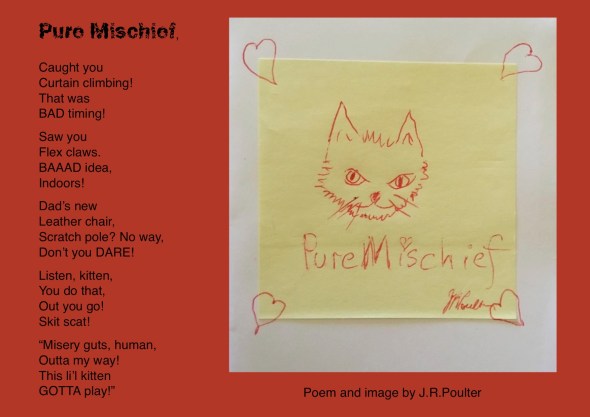 Pure Mischief,
Caught you
Curtain climbing!
That was
BAD timing!
Saw you
Flex claws.
BAAAD idea,
Indoors!
Dad's new
Leather chair,
Scratch pole? No way,
Don't you DARE!
Listen, kitten,
You do that,
Out you go!
Skit scat!
“Misery guts, human,
Outta my way!
This li'l kitten
GOTTA play!”
Pure Mischief
JRPoulter
Poem and image by J.R.Poulter